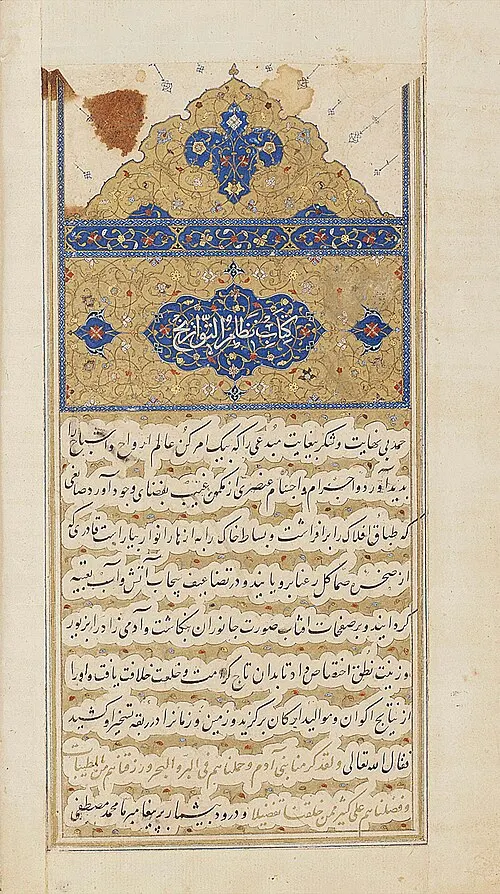 کتاب نظام التواریخ
حمد بی نهایت و شکر بغایت مبدعی را که بیک امر کن عالم ارواح و اشباح را
بدید آورد و اجرام و اجسام عنصری از مکمن غیب بفضای وجود آورد صانعی
که طباق افلاک را برافراشت و بساط خاک را به ازهار انوار بیاراست قادری که
از صخره صما کل رعنا برویانید و در تضاعیف سحاب آتش و آب تعبیه
کردانید و بر صفحات آفتاب صورت جانوران بنکاشت و آدمی زاد را بزیور
و زینت نطق اختصاص داد تا بدان تاج کرامت و خلعت خلافت یافت و او را
از نتایج اکوان و موالید ارکان برکزید و زمین و زمان را در ربقه تسخیر او کشید
فقال الله تعالی ولقد کرمنا بنی آدم وحملناهم فی البر والبحر ورزقناهم من الطیبات
وفضلناهم علی کثیر ممن خلقنا تفضیلا و درود بیشمار بر پیغامبر ما محمد مصطفی